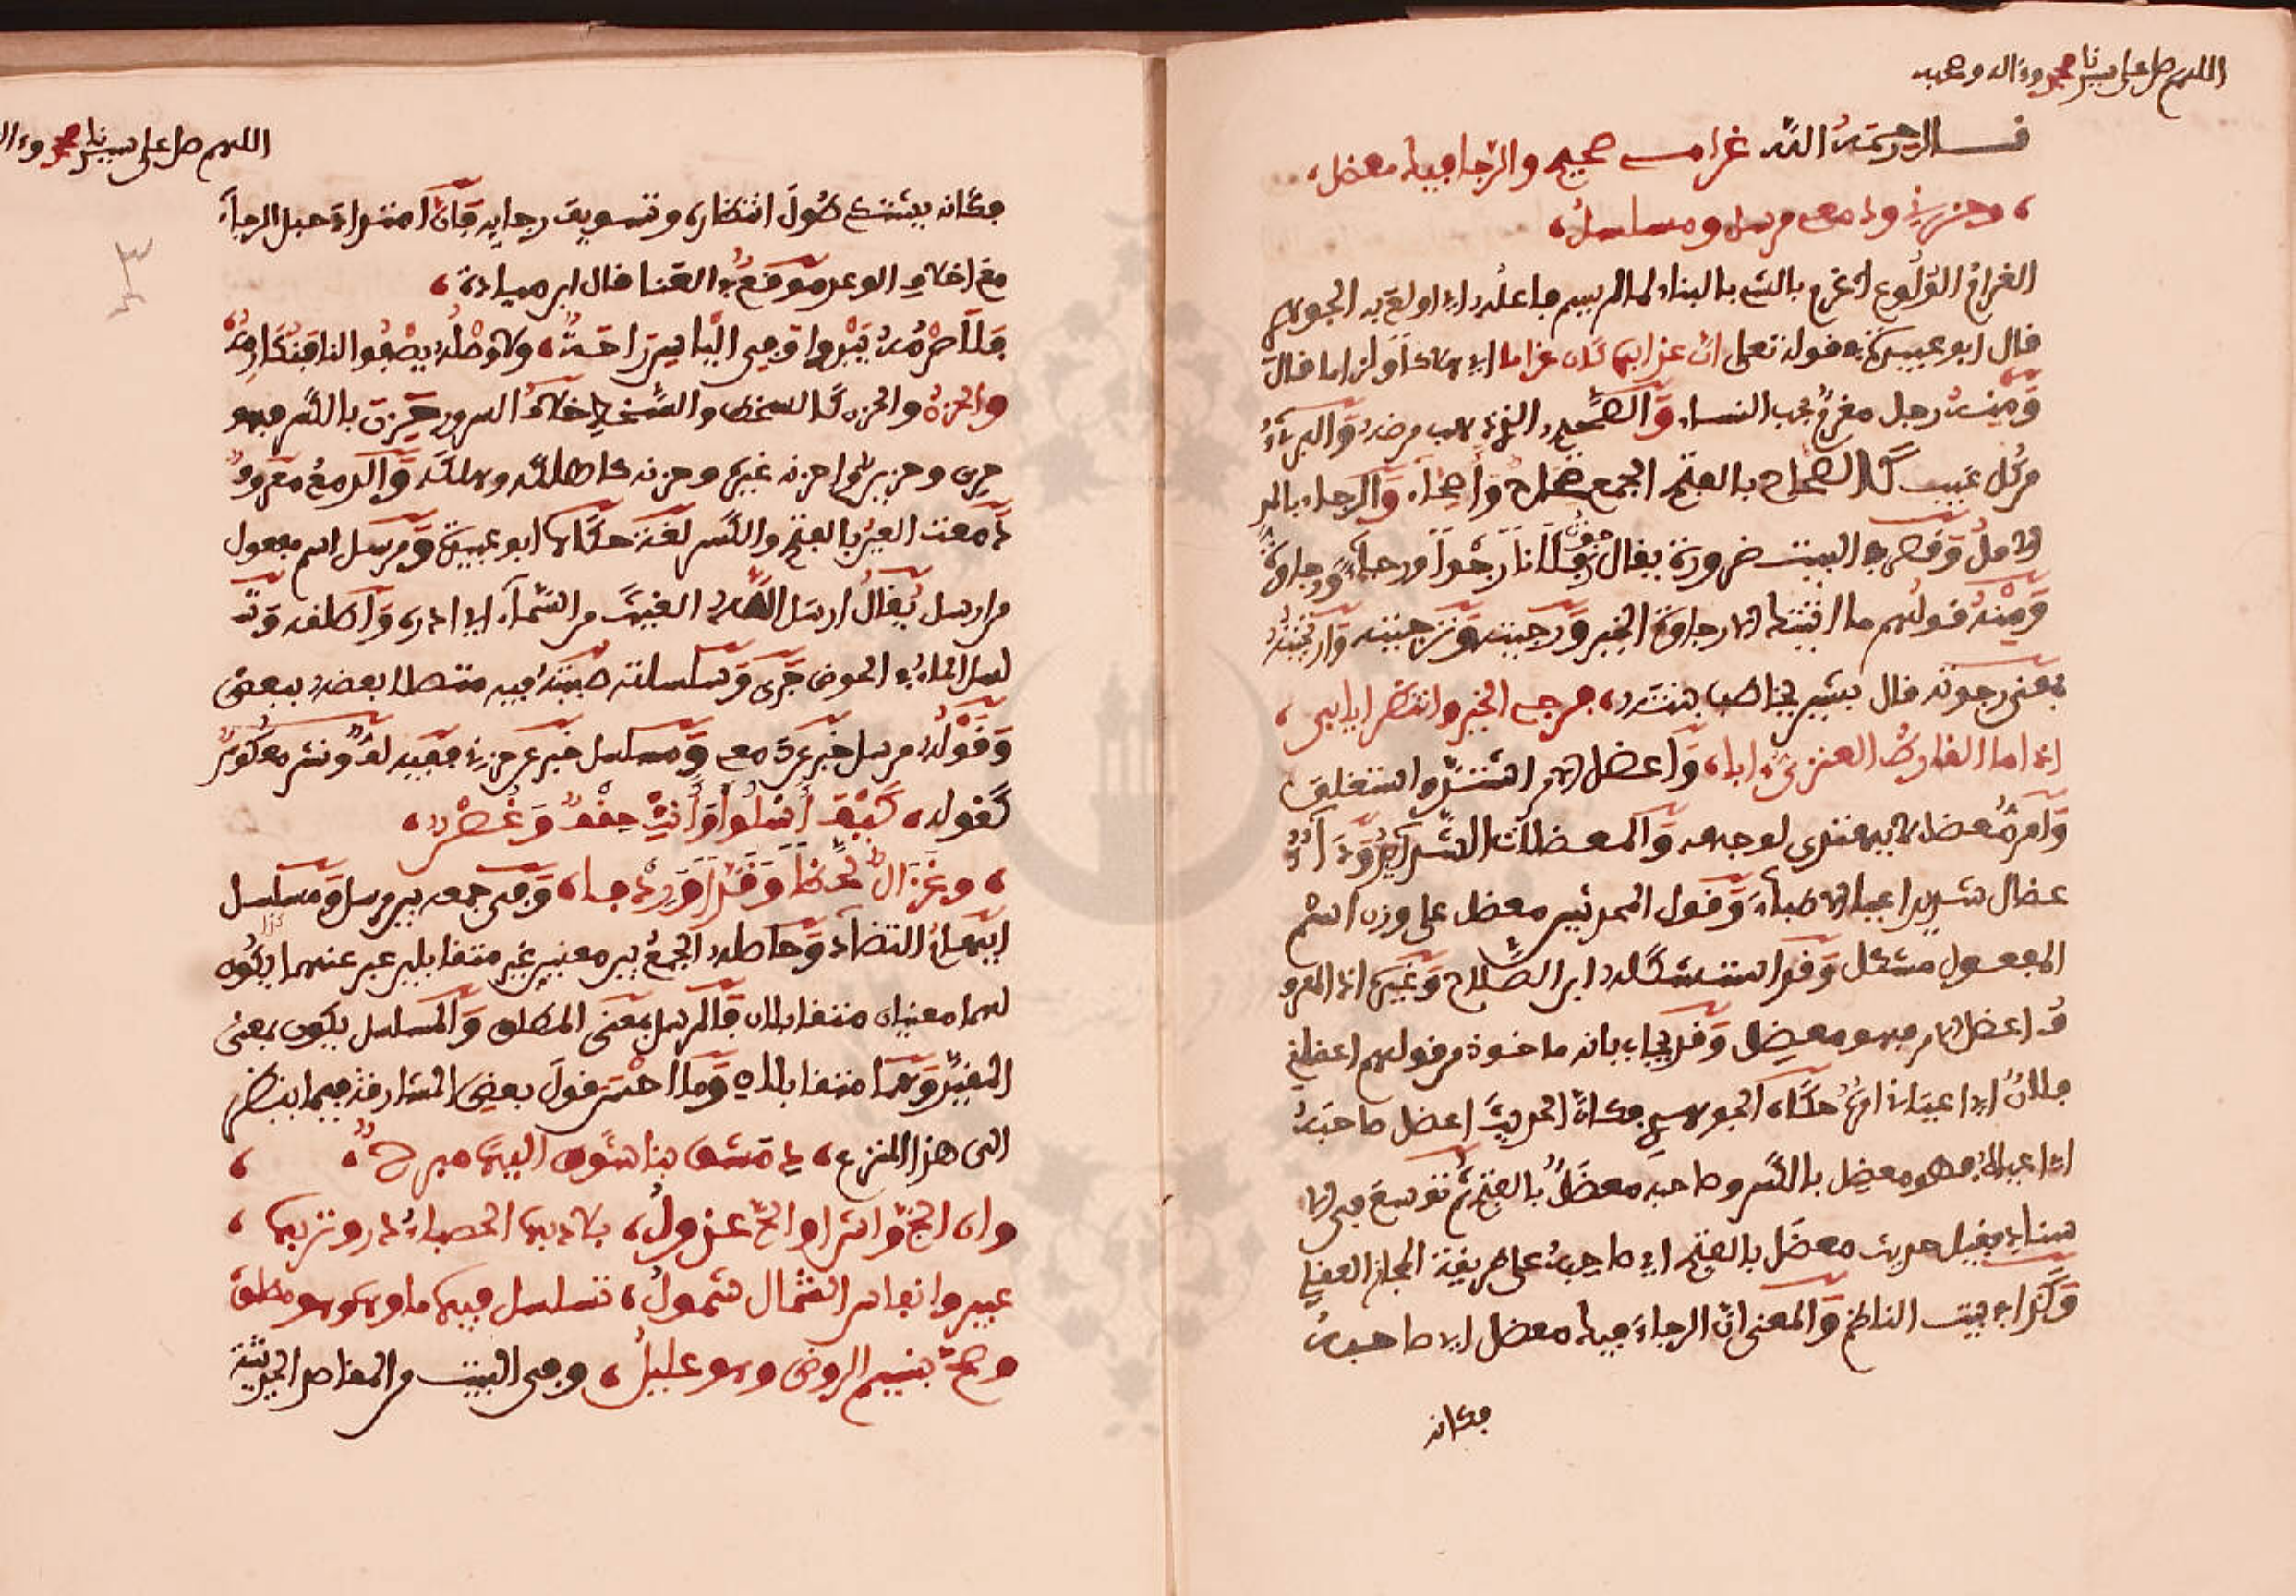 اللهم صل على سيدنا محمد وءاله وصحبه
قــال رحمه الله غرامي صحيح والرجا فيك معضل،
، وحزني ودمعي مرسل ومسلسل،
الغرام الولوع اغرم بالشيء بالبناء لما لم يسم فاعله اي اولع به الجوهري
قال ابو عبيدة في قوله تعلى ان عذابها كان غراما اي هلاكا ولزاما قال
ومنه رجل مغرم بحب النساء والصحيح الذي ذهب مرضه والبريء
من كل عيب كالصحاح بالفتح الجمع صحاح واصحاء والرجاء بالمد
الامل وقصره في البيت ضرورة يقال رجوت فلانا رجوا ورجاء ورجاوة
ومنه قولهم ما اتيتك الا رجاوة الخير ورجيته وترجيته وارتجيته
بمعنى رجوته قال بشر يخاطب بنته، فرجي الخير وانتظري ايابي،
اذا ما القارظ العنزي ءابا، واعضل الامر اشتد واستغلق
وامر معضل لا يهتدى لوجهه والمعضلات الشدائد وداء
عضال شديد اعيا الاطباء وقول المحدثين معضل على وزن اسم
المفعول مشكل وقد استشكله ابن الصلاح وغيره اذ المعرو
ف اعضل الامر فهو معضل وقد يجاب بانه ماخوذ من قولهم اعضلني
فلان اي اعياني امره حكاه الجوهري فكان الحديث اعضل صاحبه
اي اعياه فهو معضل بالكسر وصاحبه معضل بالفتح ثم توسع في الا
سناد فقيل حديث معضل بالفتح اي صاحبه على طريقة المجاز العقلي
وكذا في بيت الناظم والمعنى ان الرجاء فيك معضل اي صاحبه
فكانه
اللهم صل على سيدنا محمد وءال
فكانه يشتكي طول انتظاره وتسويف رجايه فان امتداد حبل الرجاء
مع اخلاف الوعد موقع في العنا قال ابن ميادة،
فلا صرمه يبدو وفي الياس راحة، ولا وصله يصفو لنا فنكارمه
والحزن والحزن كالسخط والسخط خلاف السرور حزن بالكسر فهو
حزن وحزين واحزنه غيره وحزنه كاهلكه وهلكه والدمع معروف
دمعت العين بالفتح والكسر لغة حكاها ابو عبيدة ومرسل اسم مفعول
من ارسل يقال ارسل الله الغيث من السماء اي ادره واطلقه وتسـ
لسل الماء في الحوض جرى وسلسلته صببته فيه متصلا بعضه ببعض
وقوله مرسل خبر عن دمعي ومسلسل خبر عن حزني ففيه لف ونشر معكوس
كقوله، كيف اسلو وانت حقف وغصن،
، وغزال لحظا وقدا وردفا، وفي جمعه بين مرسل ومسلسل
ايهام التضاد وحاصله الجمع بين معنيين غير متقابلين عبر عنهما بكون
لهما معنيان متقابلان فالمرسل بمعنى المطلق والمسلسل يكون بمعنى
المقيد وهما متقابلان وما احسن قول بعض المشارقة فيما ينظر
الى هذا المنزع، دمشق بنا شوق اليها مبرح،
وان لج واش او الح عذول، بلاد بها الحصباء در وتربها،
عبير وانفاس الشمال شمول، تسلسل فيها ماؤها وهو مطلق
وصح نسيم الروض وهو عليل، وفي البيت من المقاصد الحديثية